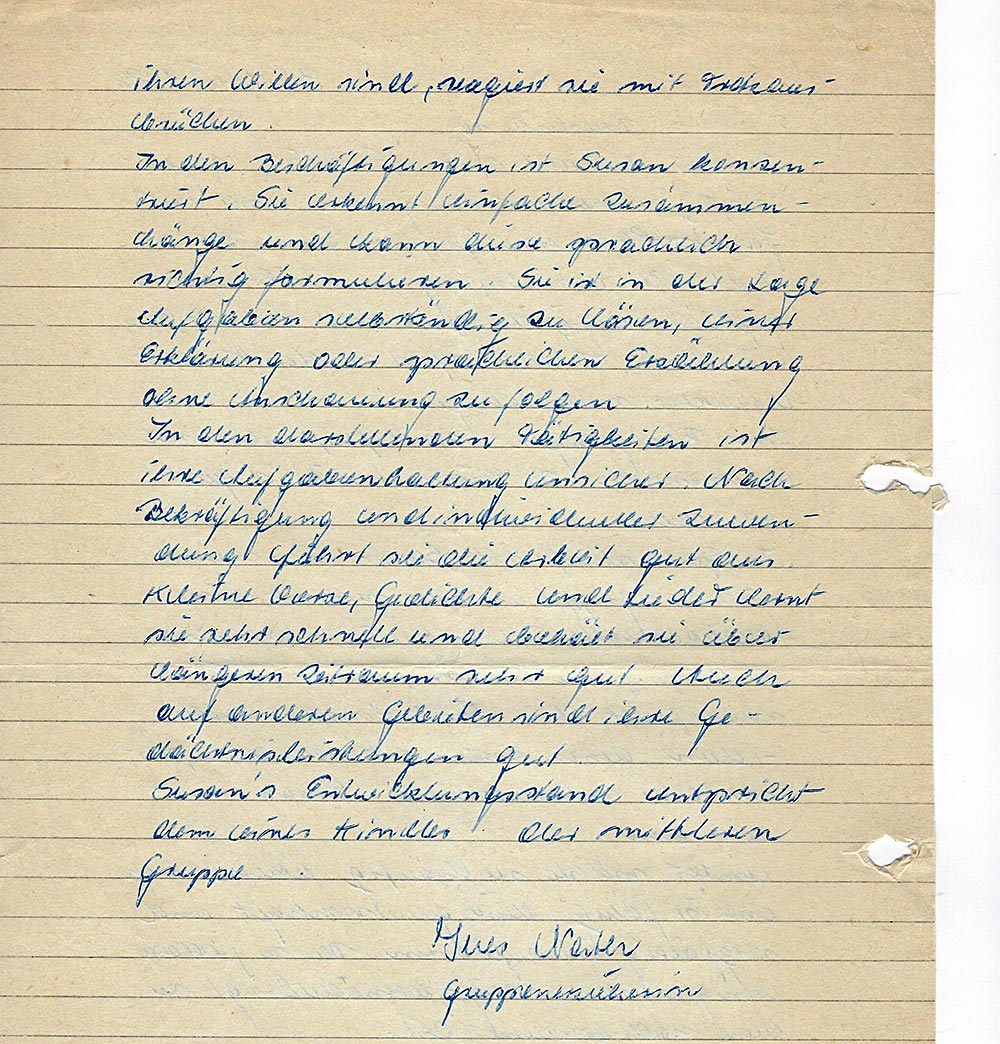 ihren Willen sind, reagiert sie mit Trotzaus-
brüchen.
In den Beschäftigungen ist Susan konzen-
triert. Sie erkennt einfache Zusammen-
hänge und kann diese sprachlich
richtig formulieren. Sie ist in der Lage
Aufgaben selbständig zu lösen, einer
Erklärung oder sprachlichen Erzählung
ohne Anschauung zu folgen.
In den darstellenden Tätigkeiten ist
ihre Aufgabenhaltung unsicher. Nach
Bekräftigung und individueller Zuwen-
dung führt sie die Arbeit gut aus.
Kleine Verse, Gedichte und Lieder lernt
sie sehr schnell und behält sie über
längeren Zeitraum sehr gut. Auch
auf anderen Gebieten sind ihre Ge-
dächtnisleistungen gut
Susan's Entwicklungsstand entspricht
dem eines Kindes der mittleren
Gruppe.
Gruppenerzieherin